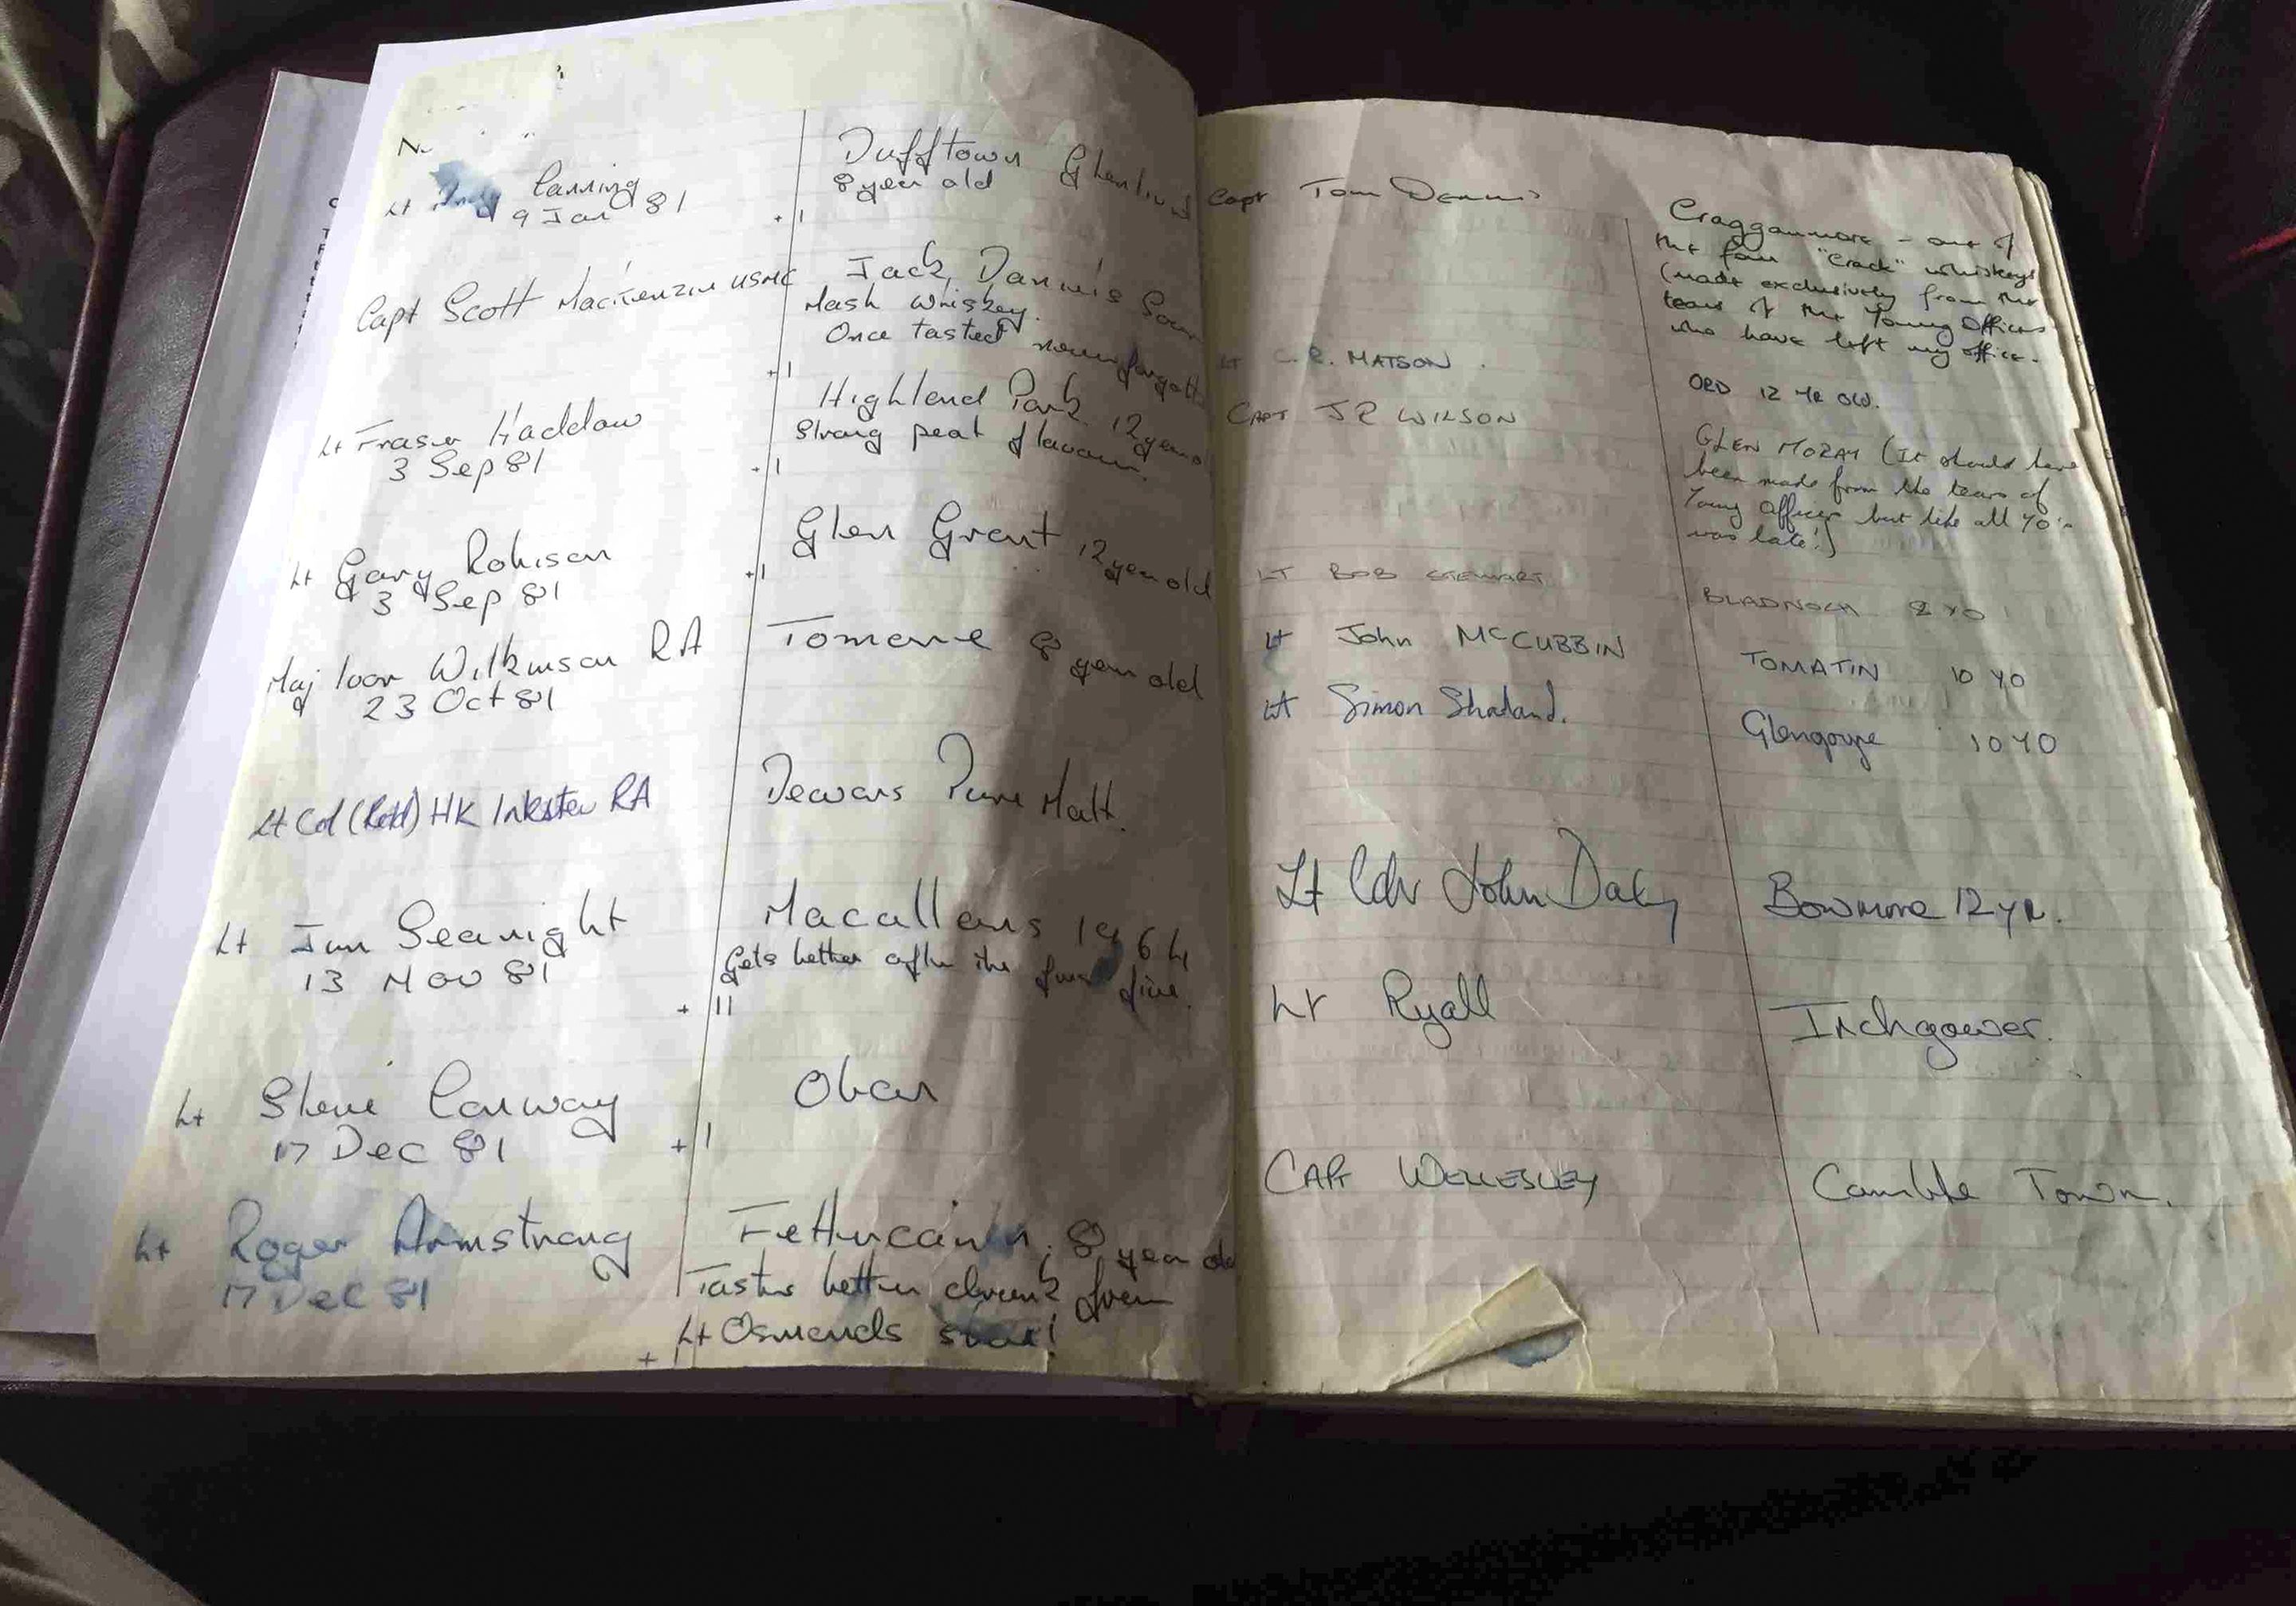 Lt Lanning
9 Jan 81
+1
Dufftown Glenlivet
8 year old
Capt Scott MacKenzie USMC
Jack Daniels Sour
Mash Whiskey.
Once tasted never
+1
Lt Fraser Haddow
3 Sep 81
+1
Highland Park 12 year
Strong peat flavour
Lt Gary Robison
3 Sep 81
+1
Glen Grant 12 year old
Maj Ioor Wilkinson RA
23 Oct 81
Tomore 8 year old
Lt Col (Retd) HK Inkster RA
Dewars Pure Malt.
Lt Jim Seanight
13 Nov 81
+11
Macallans 1964
Gets better after the first five.
Lt Steve Conway
17 Dec 81
+1
Oban
Lt Roger Armstrong
17 Dec 81
+
Fettercairn. 8 year old
Tastes better drunk from
Lt Osmonds
Capt Tom
Cragganmore - one of
the four "Crack" whiskeys
(made exclusively from the
tears of the Young Officers
who have left my office.
Lt C.R. MATSON.
ORD 12 YR OLD.
CAPT JR WILSON
GLEN MORAY (It should have
been made from the tears of
Young Officers but like all YO's
was late!)
LT BOB STEWART
BLADNOCH 8 YO
Lt John McCUBBIN
TOMATIN 10 YO
Lt Simon
Glengoyne 10 YO
Lt Cdr John Daly
Bowmore 12 yr.
Lt Ryall
Inchgower.
CAPT WELLESLEY
Camble Town.